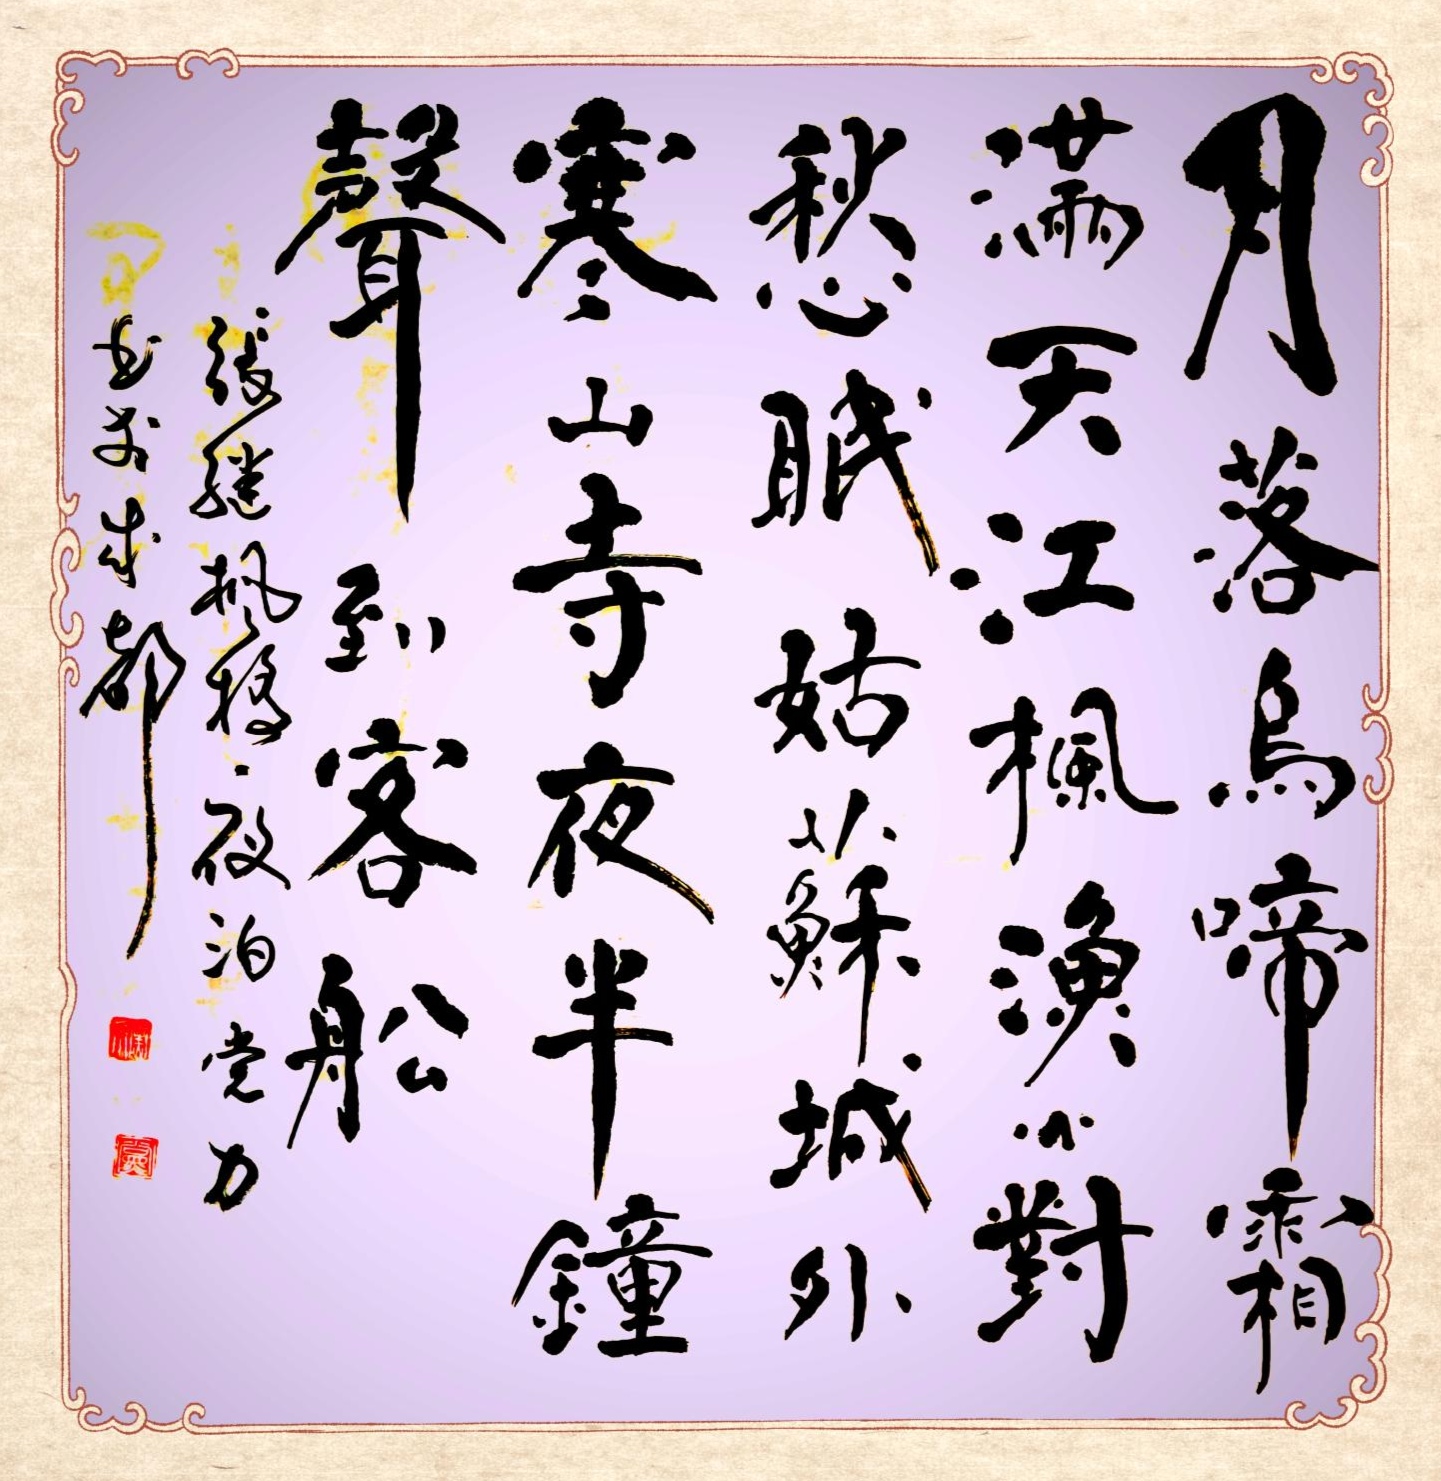 月落烏啼霜
滿天江楓漁火對
愁眠姑蘇城外
寒山寺夜半鐘
聲到客船
張繼楓橋夜泊党力
書於成都